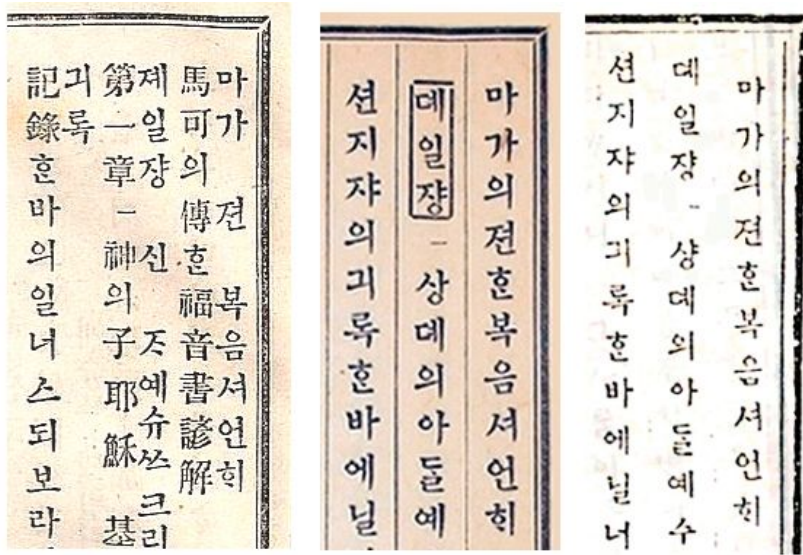 마가 젼 복음셔언ᄒᆡ
馬可의傳ᄒᆞᆫ福音書諺解
졔일쟝 신 ᄌᆞ예슈쓰크리
第一章 一 神의子耶穌 基
긔록
記錄ᄒᆞᆫ바의일너스되보라
마가의젼ᄒᆞᆫ복음셔언ᄒᆡ
뎨일쟝 一 상뎨의아ᄃᆞᆯ예
션지쟈의긔록ᄒᆞᆫ바에닐
마가의젼ᄒᆞᆫ복음셔언ᄒᆡ
뎨일쟝 一 샹뎨의아ᄃᆞᆯ예수
션지쟈의긔록ᄒᆞᆫ바에닐너